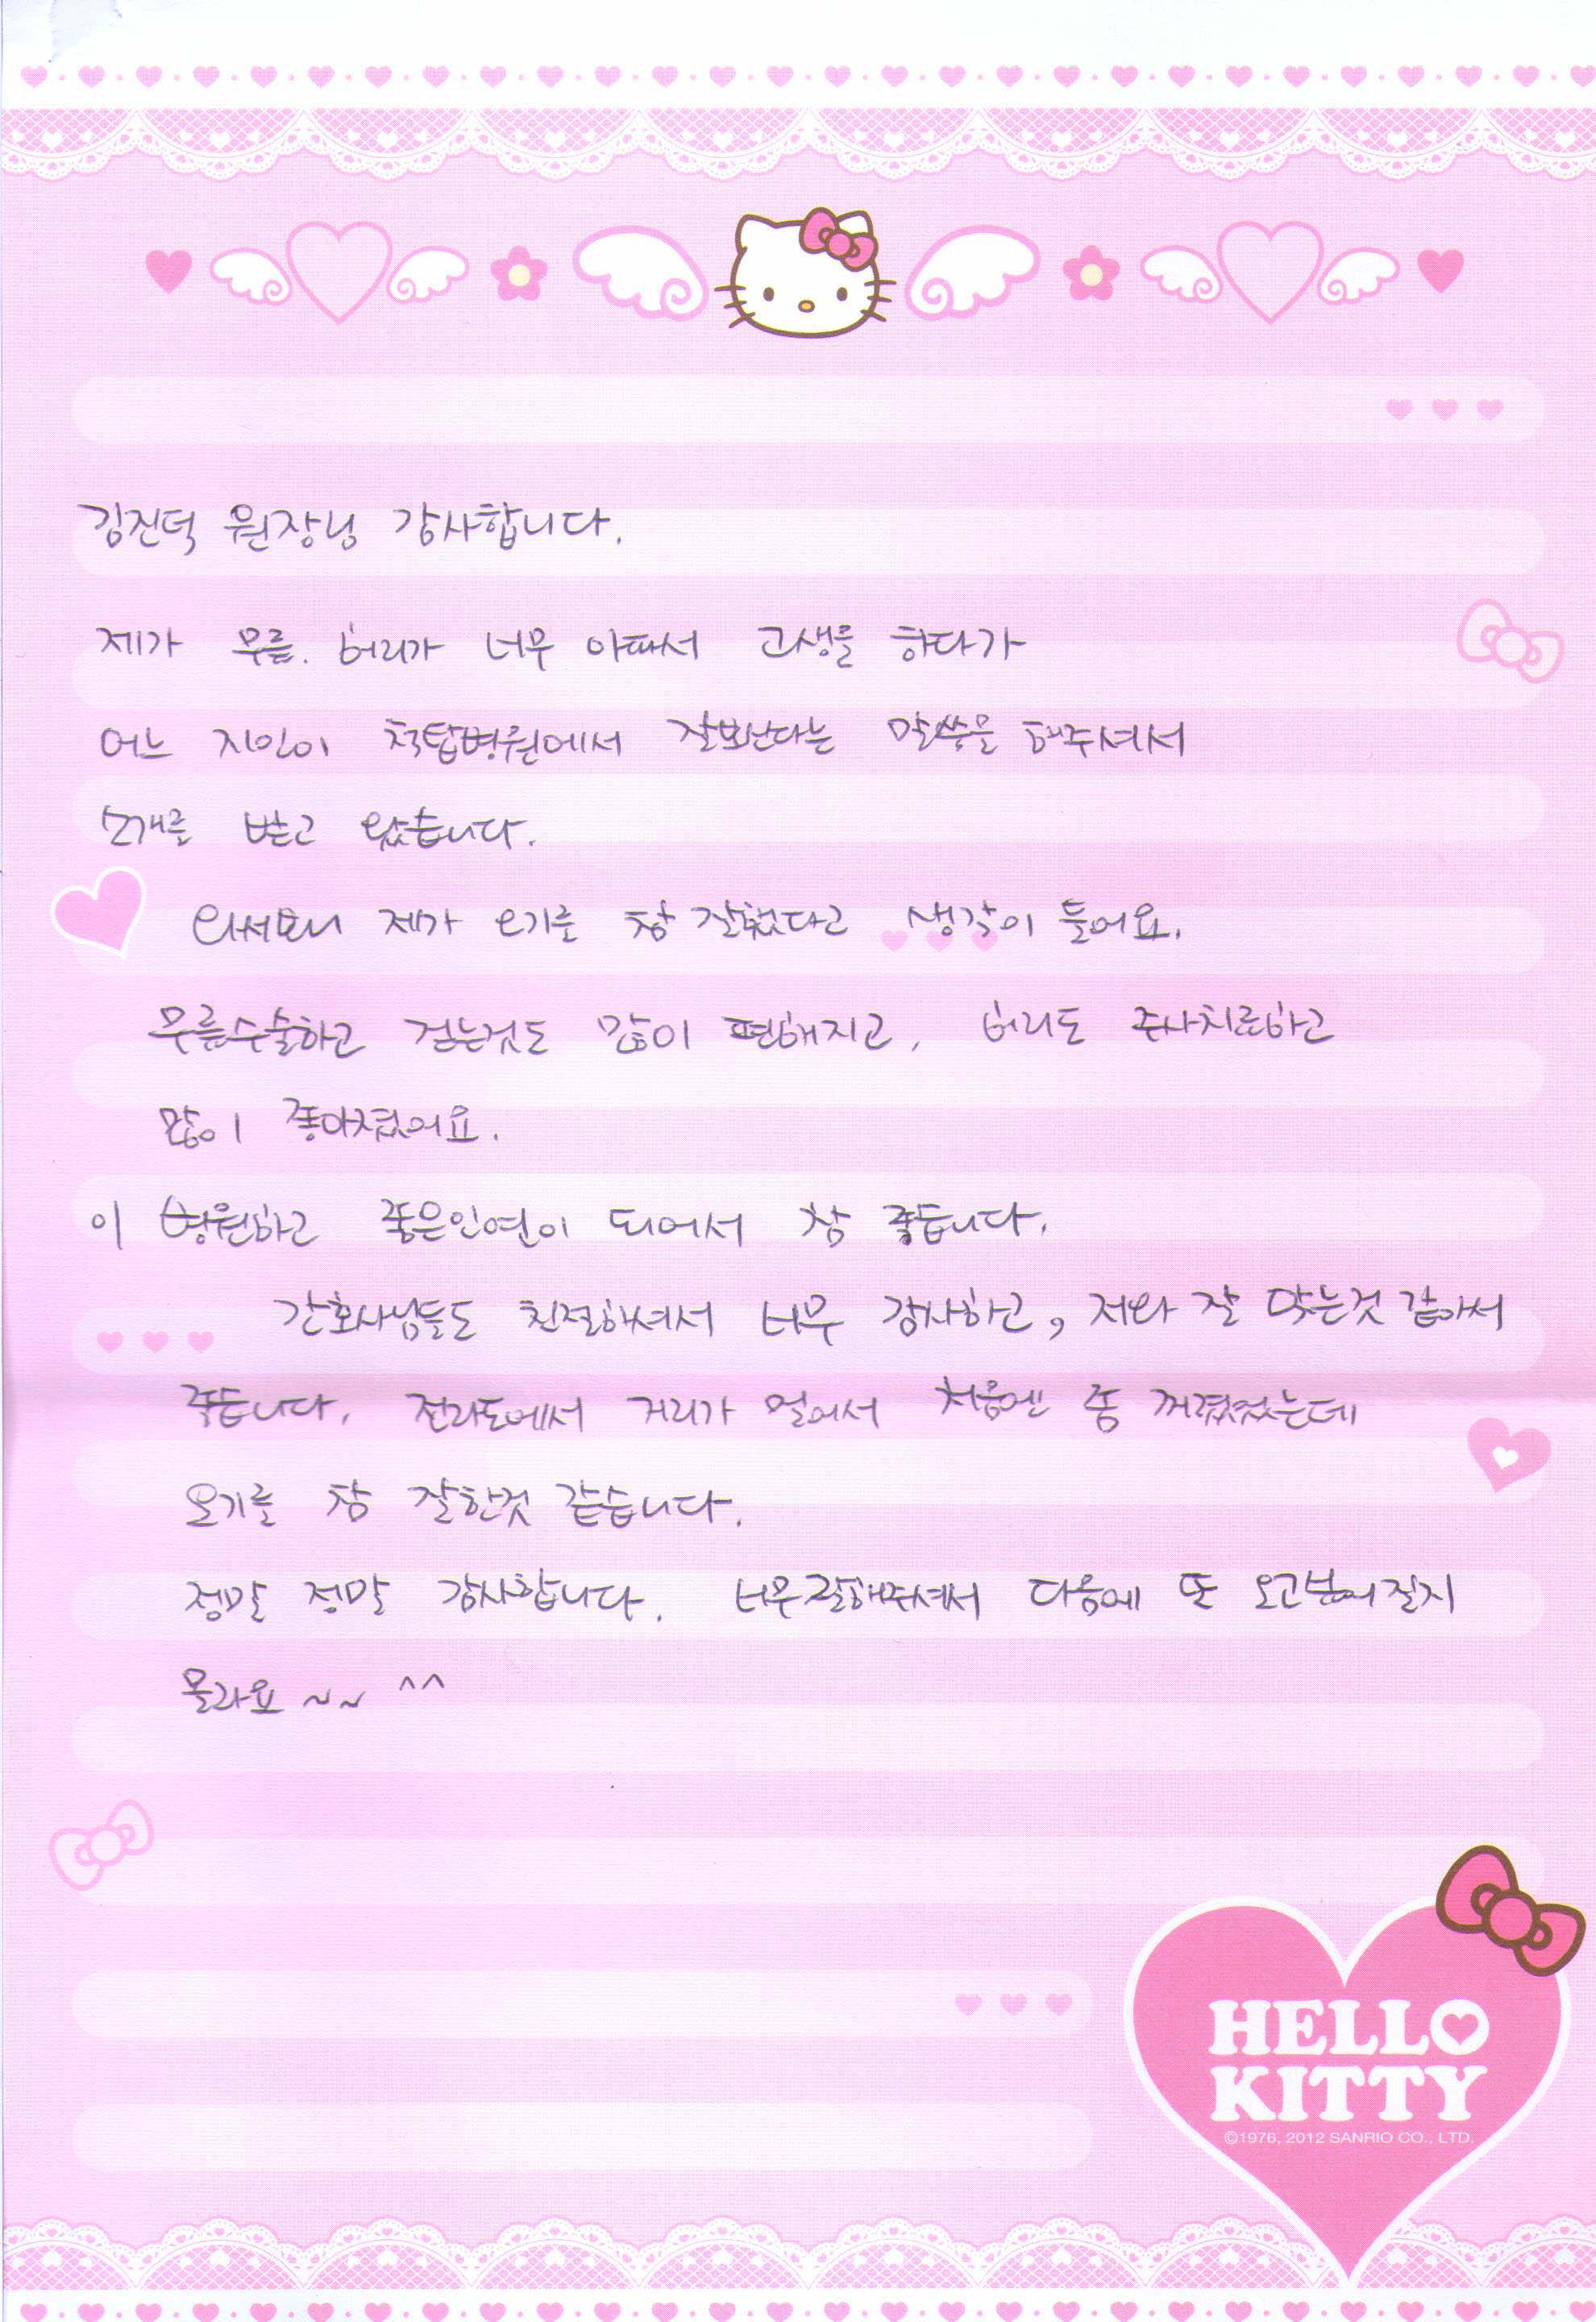 김진덕 원장님 감사합니다.
제가 무릎. 허리가 너무 아파서 고생을 하다가
어느 지인이 척탑병원에서 잘본다는 말씀을 해주셔서
소개를 받고 왔습니다.
와서보니 제가 오기를 참 잘했다고 생각이 들어요.
무릎수술하고 걷는것도 많이 편해지고, 허리도 주사치료하고
많이 좋아졌어요.
이 병원하고 좋은인연이 되어서 참 좋습니다.
간호사님들도 친절하셔서 너무 감사하고, 저와 잘 맞는것 같아서
좋습니다. 전라도에서 거리가 멀어서 처음엔 좀 꺼렸었는데
오기를 참 잘한것 같습니다.
정말 정말 감사합니다. 너무잘해주셔서 다음에 또 오고싶어질지
몰라요 ~~ ^^
HELLO
KITTY
©1976, 2012 SANRIO CO., LTD.